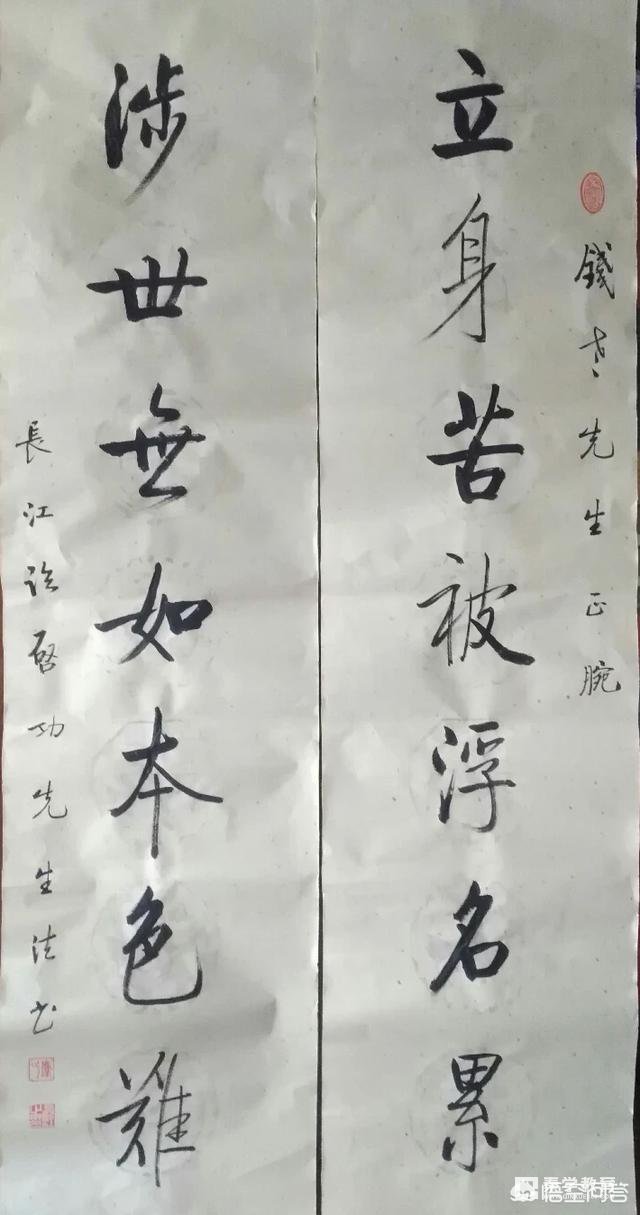 錢老先生正腕
立身苦被浮名累
涉世無如本色難
長江詠啓功先生法書